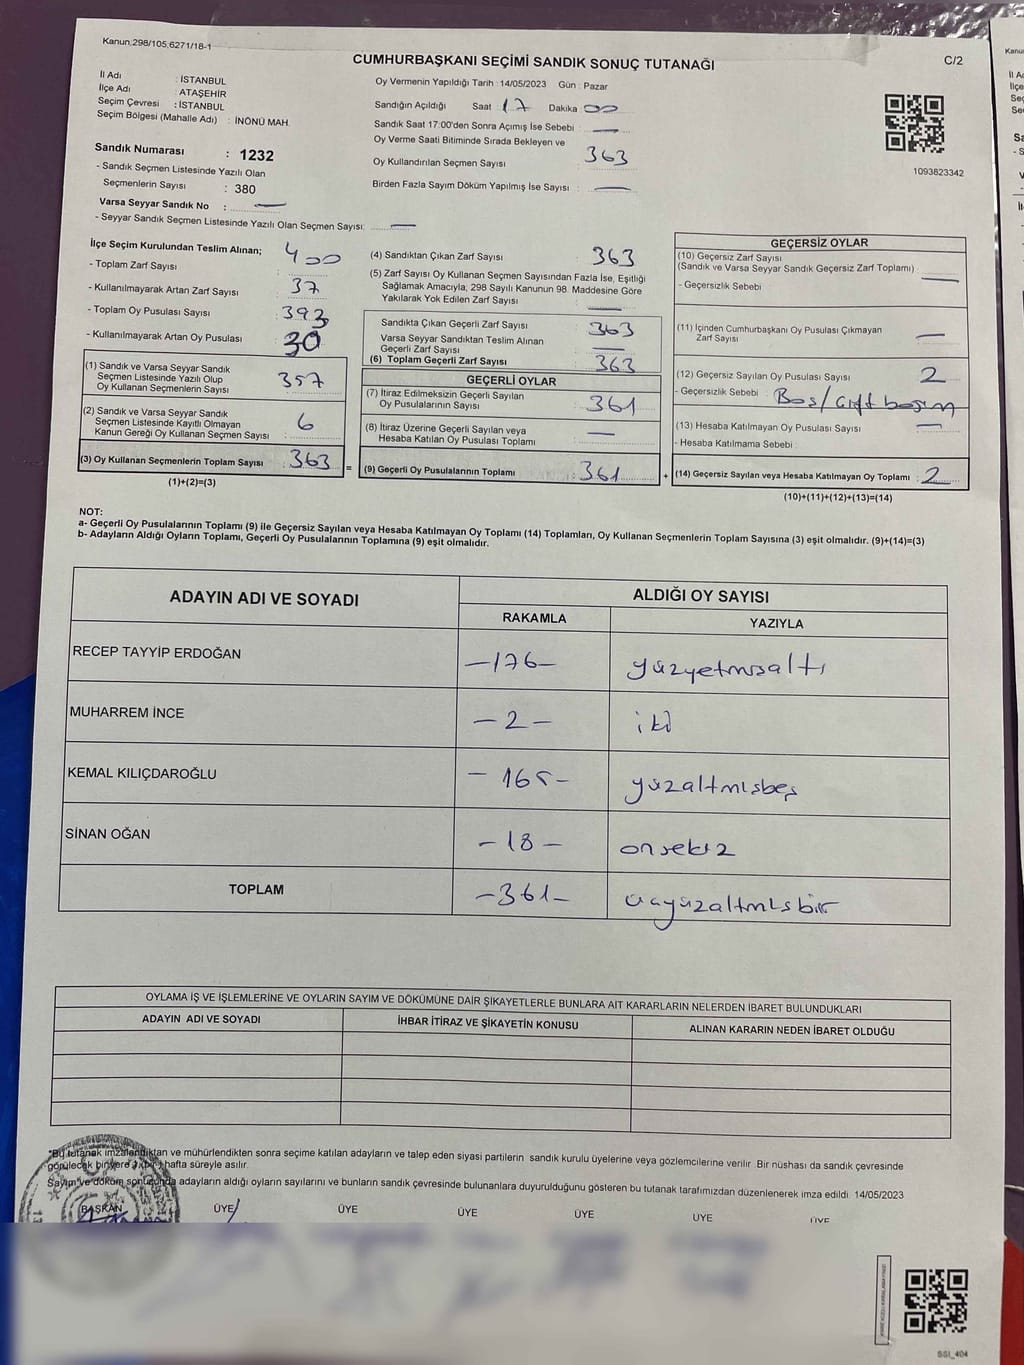 Kanun:298/105,6271/18-1
CUMHURBAŞKANI SEÇİMİ SANDIK SONUÇ TUTANAĞI
C/2
İl Adı : İSTANBUL
İlçe Adı : ATAŞEHİR
Seçim Çevresi : İSTANBUL
Seçim Bölgesi (Mahalle Adı) : İNÖNÜ MAH.
Sandık Numarası : 1232
- Sandık Seçmen Listesinde Yazılı Olan
Seçmenlerin Sayısı : 380
Varsa Seyyar Sandık No : —
- Seyyar Sandık Seçmen Listesinde Yazılı Olan Seçmen Sayısı: —
Oy Vermenin Yapıldığı Tarih : 14/05/2023 Gün : Pazar
Sandığın Açıldığı Saat : 17 Dakika 00
Sandık Saat 17:00'den Sonra Açımış İse Sebebi : —
Oy Verme Saati Bitiminde Sırada Bekleyen ve
Oy Kullandırılan Seçmen Sayısı : 363
Birden Fazla Sayım Döküm Yapılmış İse Sayısı : —
1093823342
İlçe Seçim Kurulundan Teslim Alınan;
- Toplam Zarf Sayısı : 400
- Kullanılmayarak Artan Zarf Sayısı : 37
- Toplam Oy Pusulası Sayısı : 393
- Kullanılmayarak Artan Oy Pusulası : 30
(1) Sandık ve Varsa Seyyar Sandık
Seçmen Listesinde Yazılı Olup
Oy Kullanan Seçmenlerin Sayısı : 357
(2) Sandık ve Varsa Seyyar Sandık
Seçmen Listesinde Kayıtlı Olmayan
Kanun Gereği Oy Kullanan Seçmen Sayısı : 6
(3) Oy Kullanan Seçmenlerin Toplam Sayısı : 363
(1)+(2)=(3)
=
(4) Sandıktan Çıkan Zarf Sayısı : 363
(5) Zarf Sayısı Oy Kullanan Seçmen Sayısından Fazla İse, Eşitliği
Sağlamak Amacıyla, 298 Sayılı Kanunun 98. Maddesine Göre
Yakılarak Yok Edilen Zarf Sayısı : —
Sandıkta Çıkan Geçerli Zarf Sayısı : 363
Varsa Seyyar Sandıktan Teslim Alınan
Geçerli Zarf Sayısı : —
(6) Toplam Geçerli Zarf Sayısı : 363
GEÇERLİ OYLAR
(7) İtiraz Edilmeksizin Geçerli Sayılan
Oy Pusulalarının Sayısı : 361
(8) İtiraz Üzerine Geçerli Sayılan veya
Hesaba Katılan Oy Pusulası Toplamı : —
(9) Geçerli Oy Pusulalarının Toplamı : 361
+
GEÇERSİZ OYLAR
(10) Geçersiz Zarf Sayısı
(Sandık ve Varsa Seyyar Sandık Geçersiz Zarf Toplamı) : —
- Geçersizlik Sebebi :
(11) İçinden Cumhurbaşkanı Oy Pusulası Çıkmayan
Zarf Sayısı : —
(12) Geçersiz Sayılan Oy Pusulası Sayısı : 2
- Geçersizlik Sebebi : Boş/çift basım
(13) Hesaba Katılmayan Oy Pusulası Sayısı : —
- Hesaba Katılmama Sebebi :
(14) Geçersiz Sayılan veya Hesaba Katılmayan Oy Toplamı : 2
(10)+(11)+(12)+(13)=(14)
NOT:
a- Geçerli Oy Pusulalarının Toplamı (9) ile Geçersiz Sayılan veya Hesaba Katılmayan Oy Toplamı (14) Toplamları, Oy Kullanan Seçmenlerin Toplam Sayısına (3) eşit olmalıdır. (9)+(14)=(3)
b- Adayların Aldığı Oyların Toplamı, Geçerli Oy Pusulalarının Toplamına (9) eşit olmalıdır.
ADAYIN ADI VE SOYADI
ALDIĞI OY SAYISI
RAKAMLA YAZIYLA
RECEP TAYYİP ERDOĞAN -176- yüzyetmişaltı
MUHARREM İNCE -2- iki
KEMAL KILIÇDAROĞLU -165- yüzaltmışbeş
SİNAN OĞAN -18- onsekiz
TOPLAM -361- üçyüzaltmışbir
OYLAMA İŞ VE İŞLEMLERİNE VE OYLARIN SAYIM VE DÖKÜMÜNE DAİR ŞİKAYETLERLE BUNLARA AİT KARARLARIN NELERDEN İBARET BULUNDUKLARI
ADAYIN ADI VE SOYADI İHBAR İTİRAZ VE ŞİKAYETİN KONUSU ALINAN KARARIN NEDEN İBARET OLDUĞU
"Bu tutanak imzalandıktan ve mühürlendikten sonra seçime katılan adayların ve talep eden siyasi partilerin sandık kurulu üyelerine veya gözlemcilerine verilir. Bir nüshası da sandık çevresinde
görülecek bir yere hafta süreyle asılır.
Sayım ve döküm sonucunda adayların aldığı oyların sayılarını ve bunların sandık çevresinde bulunanlara duyurulduğunu gösteren bu tutanak tarafımızdan düzenlenerek imza edildi. 14/05/2023
BAŞKAN ÜYE ÜYE ÜYE ÜYE ÜYE ÜYE
SSI_404